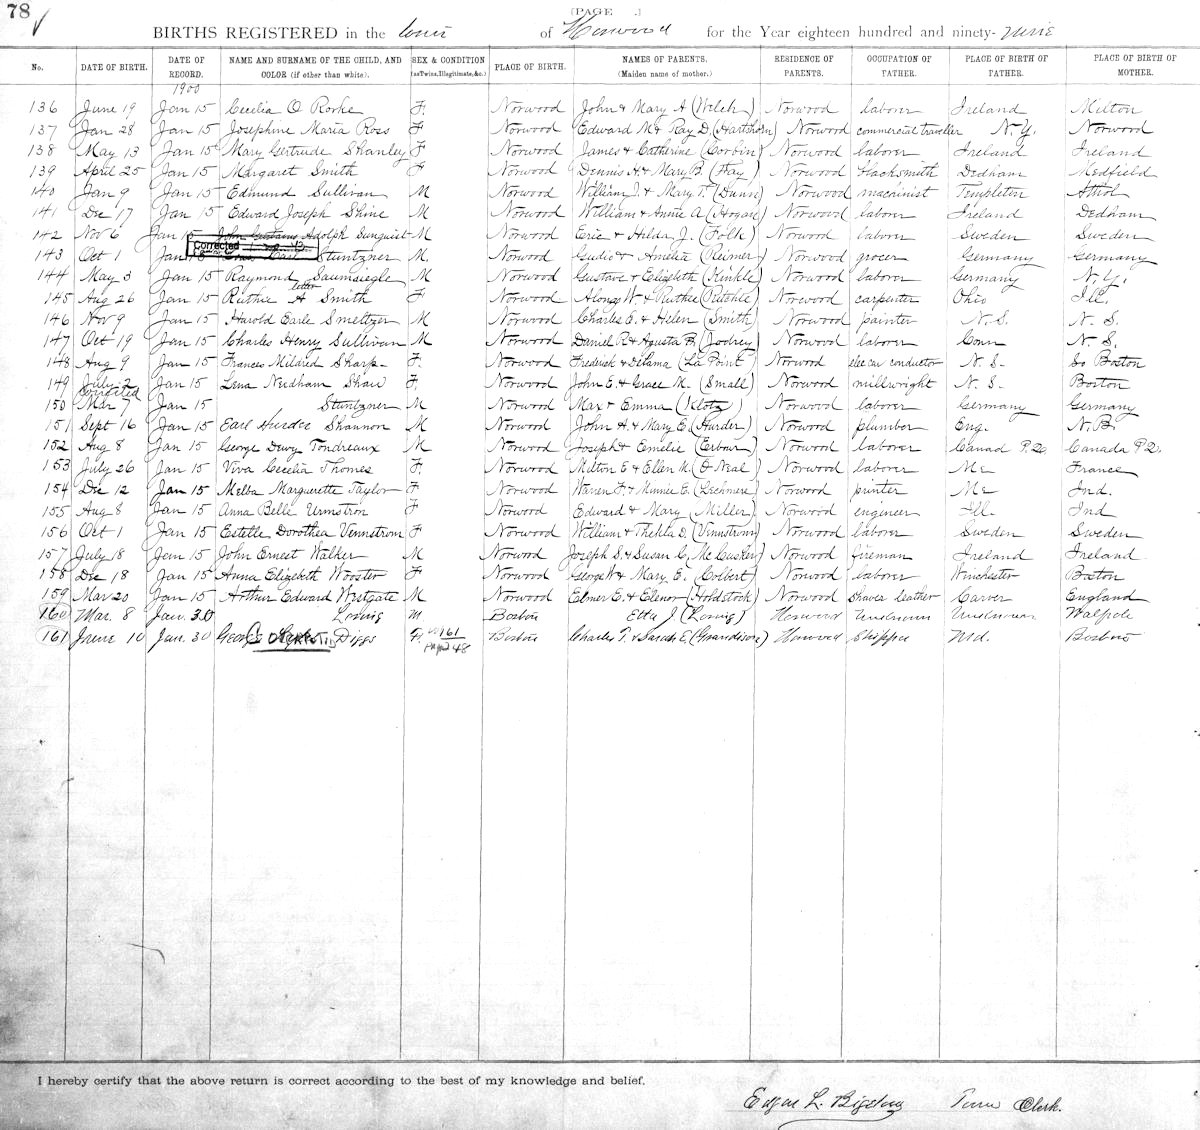 78
(PAGE .)
BIRTHS REGISTERED in the town of Norwood for the Year eighteen hundred and ninety-nine
No. DATE OF BIRTH. DATE OF RECORD. NAME AND SURNAME OF THE CHILD, AND COLOR (if other than white). SEX & CONDITION (as Twins, Illegitimate, &c.) PLACE OF BIRTH. NAMES OF PARENTS. (Maiden name of mother.) RESIDENCE OF PARENTS. OCCUPATION OF FATHER. PLACE OF BIRTH OF FATHER. PLACE OF BIRTH OF MOTHER.
1900
136 June 19 Jan 15 Cecelia O Rorke F. Norwood John & Mary A (Welch) Norwood laborer Ireland Milton
137 Jan 28 Jan 15 Josephine Maria Ross F Norwood Edward M & Ray D. (Hartshorn) Norwood commercial traveller N.Y. Norwood
138 May 13 Jan 15 Mary Gertrude Shanley F Norwood James & Catherine (Corbin) Norwood laborer Ireland Ireland
139 April 25 Jan 15 Margaret Smith F Norwood Dennis H. & Mary B. (Fay) Norwood blacksmith Dedham Medfield
140 Jan 9 Jan 15 Edmund Sullivan M Norwood William J. & Mary T. (Dunn) Norwood machinist Templeton Athol
141 Dec 17 Jan 15 Edward Joseph Shine M Norwood William & Annie A (Hogan) Norwood laborer Ireland Dedham
142 Nov 6 Jan 15 John Gustavus Adolph Sunquist M Norwood Eric & Hilda J. (Folk) Norwood laborer Sweden Sweden
Corrected
143 Oct 1 Jan 15 Carl Stuntzner M Norwood Guido & Amelia (Reimer) Norwood grocer Germany Germany
144 May 3 Jan 15 Raymond Saumsiegle M Norwood Gustave & Elizabeth (Kinkle) Norwood laborer Germany N.Y.
145 Aug 26 Jan 15 Ruthie A Smith F Norwood Alonzo W & Ruthie (Ritchie) Norwood carpenter Ohio Ill.
146 Nov 9 Jan 15 Harold Earle Smeltzer M Norwood Charles E. & Helen (Smith) Norwood painter N.S. N.S.
147 Oct 19 Jan 15 Charles Henry Sullivan M Norwood Daniel R & Agusta B. (Jodrey) Norwood laborer Conn N.S.
148 Aug 9 Jan 15 Frances Mildred Sharp F. Norwood Frederick & Delama (La Point) Norwood elec car conductor N.S. So Boston
149 July 2 Jan 15 Lena Nudham Shaw F Norwood John E. & Grace M. (Small) Norwood millwright N.S. Boston
Corrected
150 Mar 7 Jan 15 Stuntzner M Norwood Max & Emma (Klotz) Norwood laborer Germany Germany
151 Sept 16 Jan 15 Earl Hurder Shannon M Norwood John H. & Mary E. (Hurder) Norwood plumber Eng. N.B.
152 Aug 8 Jan 15 George Dewy Tondreaux M Norwood Joseph & Emelie (Erbour) Norwood laborer Canad P.Q. Canada P.Q.
153 July 26 Jan 15 Viva Cecelia Thomes F Norwood Milton E & Ellen M. (O Neal) Norwood laborer Me France
154 Dec 12 Jan 15 Melba Marguerette Taylor F Norwood Warren F. & Minnie E. (Lechmere) Norwood printer Me Ind.
155 Aug 8 Jan 15 Anna Belle Urmstron F Norwood Edward & Mary (Miller) Norwood engineer Ill. Ind
156 Oct 1 Jan 15 Estelle Dorothea Vennstrom F Norwood William & Thekla D. (Vennstrom) Norwood laborer Sweden Sweden
157 July 18 Jan 15 John Ernest Walker M Norwood Joseph S. & Susan C. (McCusker) Norwood fireman Ireland Ireland
158 Dec 18 Jan 15 Anna Elizabeth Wooster F Norwood George W & Mary E. (Colbert) Norwood laborer Winchester Boston
159 Mar 20 Jan 15 Arthur Edward Westgate M Norwood Elmer E. & Elenor (Holdstock) Norwood shaver leather Carver England
160 Mar. 8 Jan. 30 Loring M Boston Etta J. (Loring) Norwood Unknown Unknown Walpole
161 June 10 Jan. 30 George Diggs Boston Charles T. & Sarah E (Grandison) Norwood Shipper Md. Boston
I hereby certify that the above return is correct according to the best of my knowledge and belief.
Edgar L. Bigelow Town Clerk.